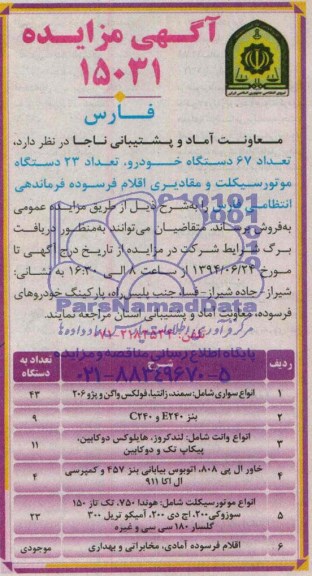 آگهی مزایده
۱۵۰۳۱
فارس
معاونت آماد و پشتیبانی ناجا در نظر دارد،
تعداد ۶۷ دستگاه خودرو، تعداد ۲۳ دستگاه
موتورسیکلت و مقادیری اقلام فرسوده فرماندهی
انتظامی فارس را به‌شرح ذیل از طریق مزایده عمومی
به‌فروش برساند. متقاضیان می‌توانند به‌منظور دریافت
برگ شرایط شرکت در مزایده از تاریخ درج آگهی تا
مورخ ۱۳۹۴/۰۶/۲۴ از ساعت ۸ الی ۱۶:۳۰ به نشانی:
شیراز- جاده شیراز- فسا- جنب پلیس راه، پارکینگ خودروهای
فرسوده، معاونت آماد و پشتیبانی استان مراجعه نمایند.
ParsNamadData
پایگاه اطلاع رسانی مناقصه و مزایده
۰۲۱-۸۸۳۴۹۶۷۰-۵
ردیف تعداد به دستگاه
۱ انواع سواری شامل: سمند، زانتیا، فولکس واگن و پژو ۲۰۶ ۴۳
۲ بنز E۲۴۰ و C۲۴۰ ۹
۳ انواع وانت شامل: لندکروز، هایلوکس دوکابین، پیکاپ تک و دوکابین ۱۱
۴ خاور ال پی ۸۰۸، اتوبوس بیابانی بنز ۴۵۷ و کمپرسی ال اکا ۹۱۱ ۴
۵ انواع موتورسیکلت شامل: هوندا ۷۵۰، تک تاز ۱۵۰ سوزوکی ۲۰۰، اچ دی ۲۰۰، آمیکو تریل ۳۰۰ گلسار ۱۸۰ سی سی و غیره ۲۳
۶ اقلام فرسوده آمادی، مخابراتی و بهداری موجودی